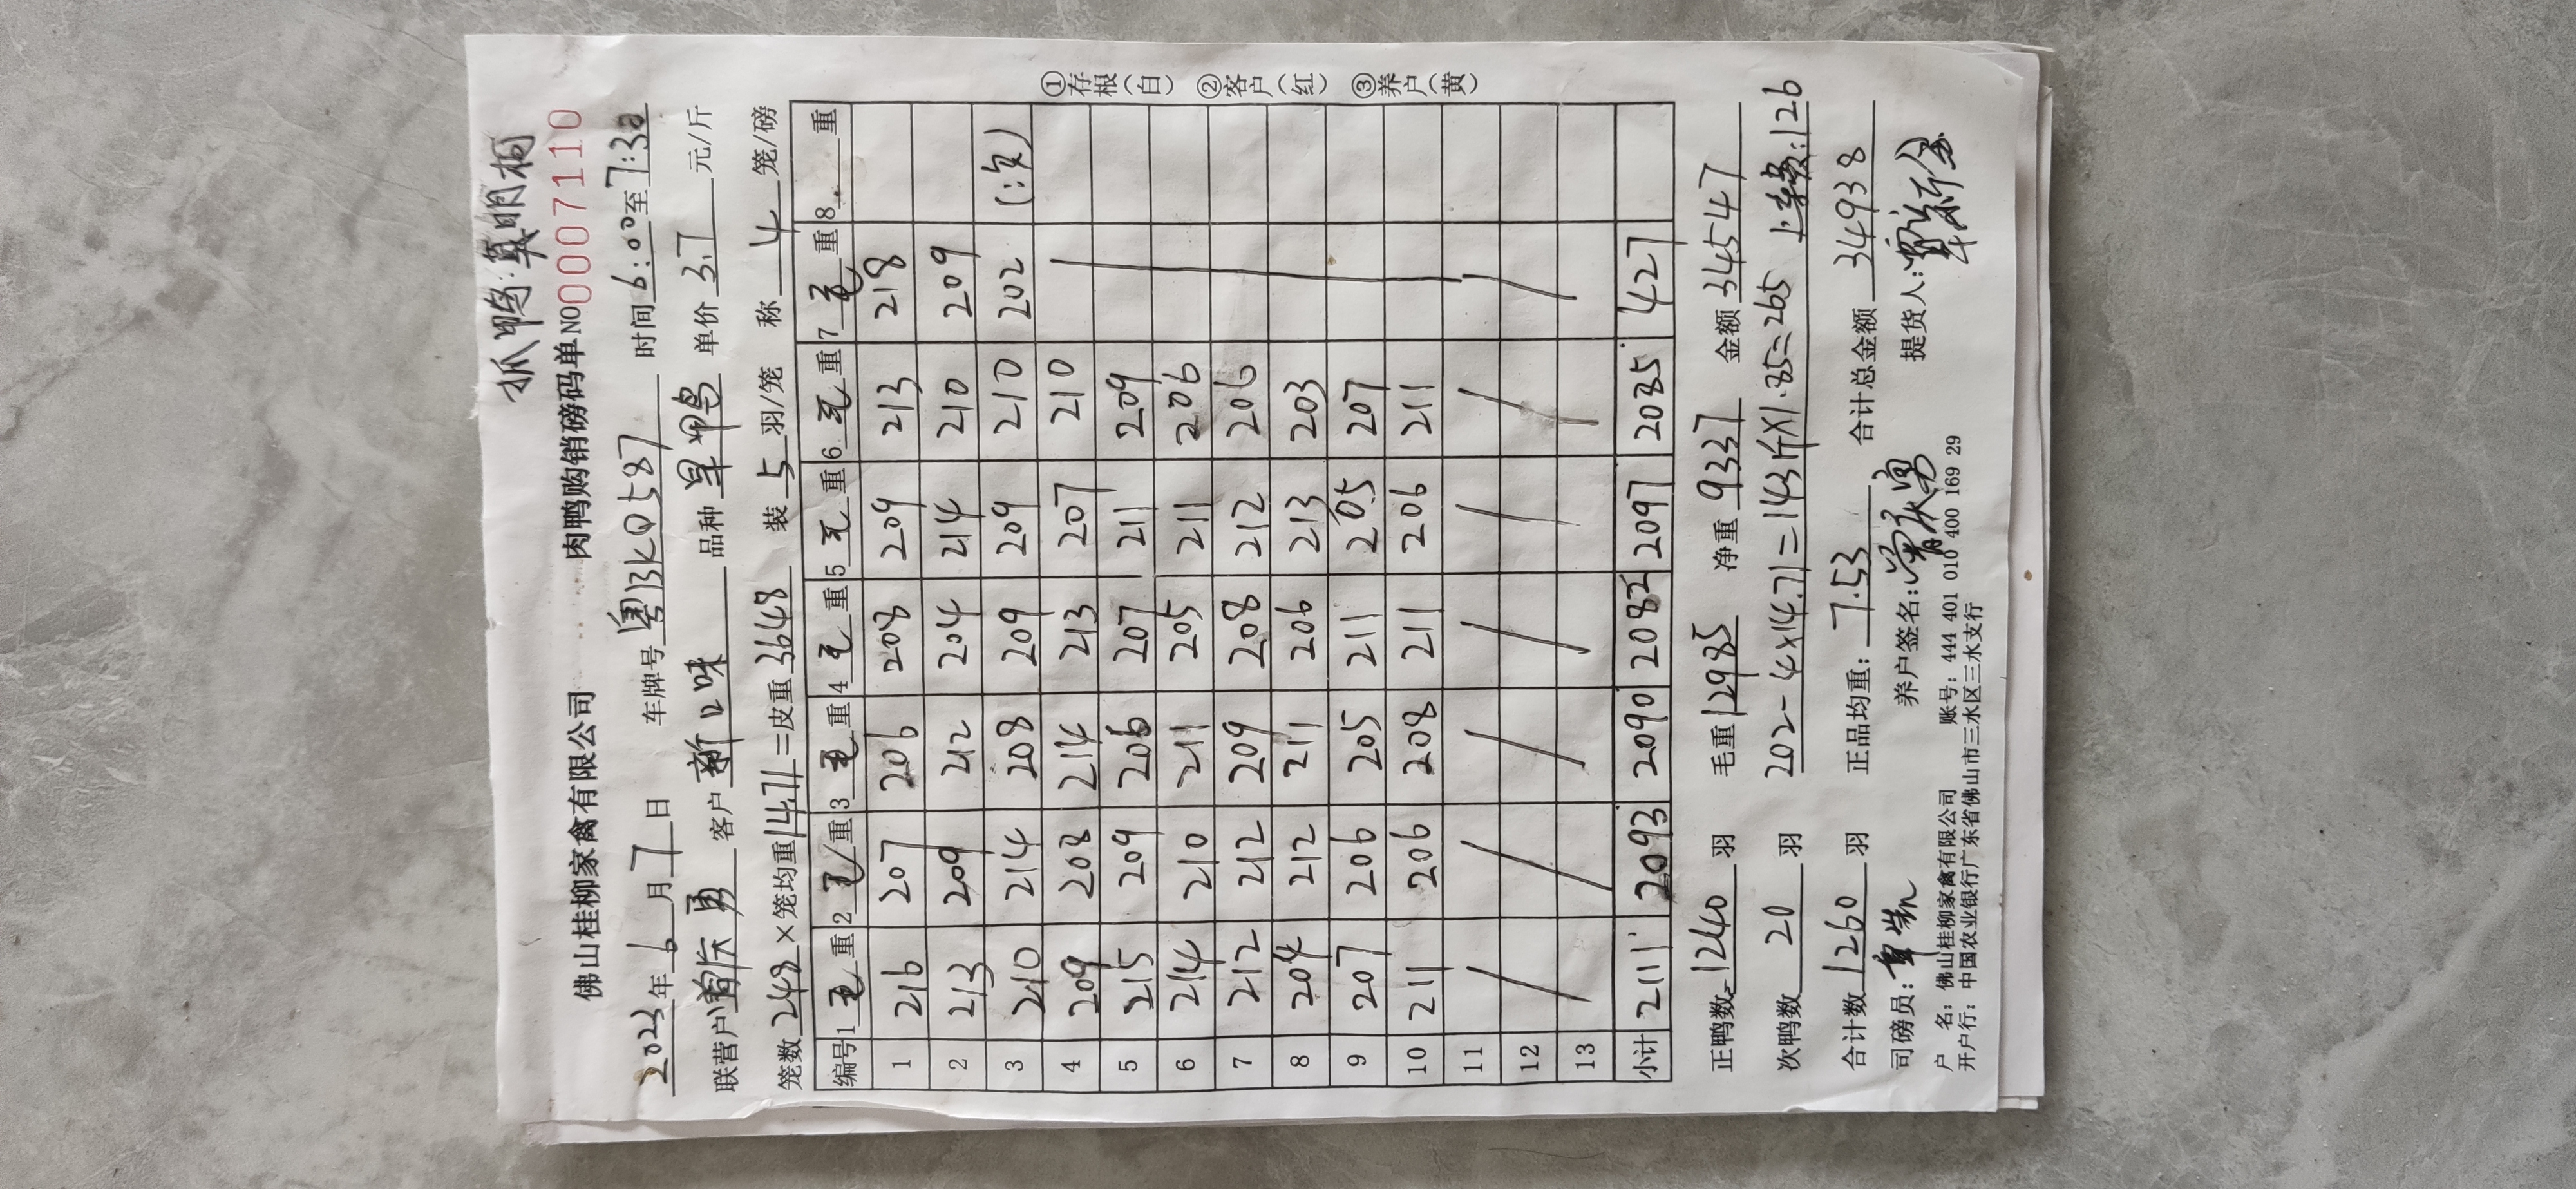 抓鸭:莫明桐
佛山桂柳家禽有限公司 肉鸭购销磅码单 NO 0007110
2023年6月7日 车牌号粤BKQ587 时间6:00至7:30
联营户曾庆勇 客户新口味 品种旱鸭 单价3.7元/斤
笼数248×笼均重14.71=皮重3648 装5羽/笼 称4笼/磅
编号 1毛重 2毛重 3毛重 4毛重 5毛重 6毛重 7毛重 8 重
1 216 207 206 208 209 213 218
2 213 209 212 204 214 210 209
3 210 214 208 209 209 210 202 (次)
4 209 208 214 213 207 210
5 215 209 206 207 211 209
6 214 210 211 205 211 206
7 212 212 209 208 212 206
8 204 212 211 206 213 203
9 207 206 205 211 205 207
10 211 206 208 211 206 211
11
12
13
小计 2111 2093 2090 2082 2097 2085 427
①存根(白) ②客户(红) ③养户(黄)
正鸭数1240羽 毛重12985 净重9337 金额34547
次鸭数20羽 202-4×14.71=143斤×1.85=265 上车费:126
合计数1260羽 正品均重:7.53 合计总金额34938
司磅员: 养户签名:曾庆勇 提货人:
户 名: 佛山桂柳家禽有限公司 账号: 444 401 010 400 169 29
开户行: 中国农业银行广东省佛山市三水区三水支行